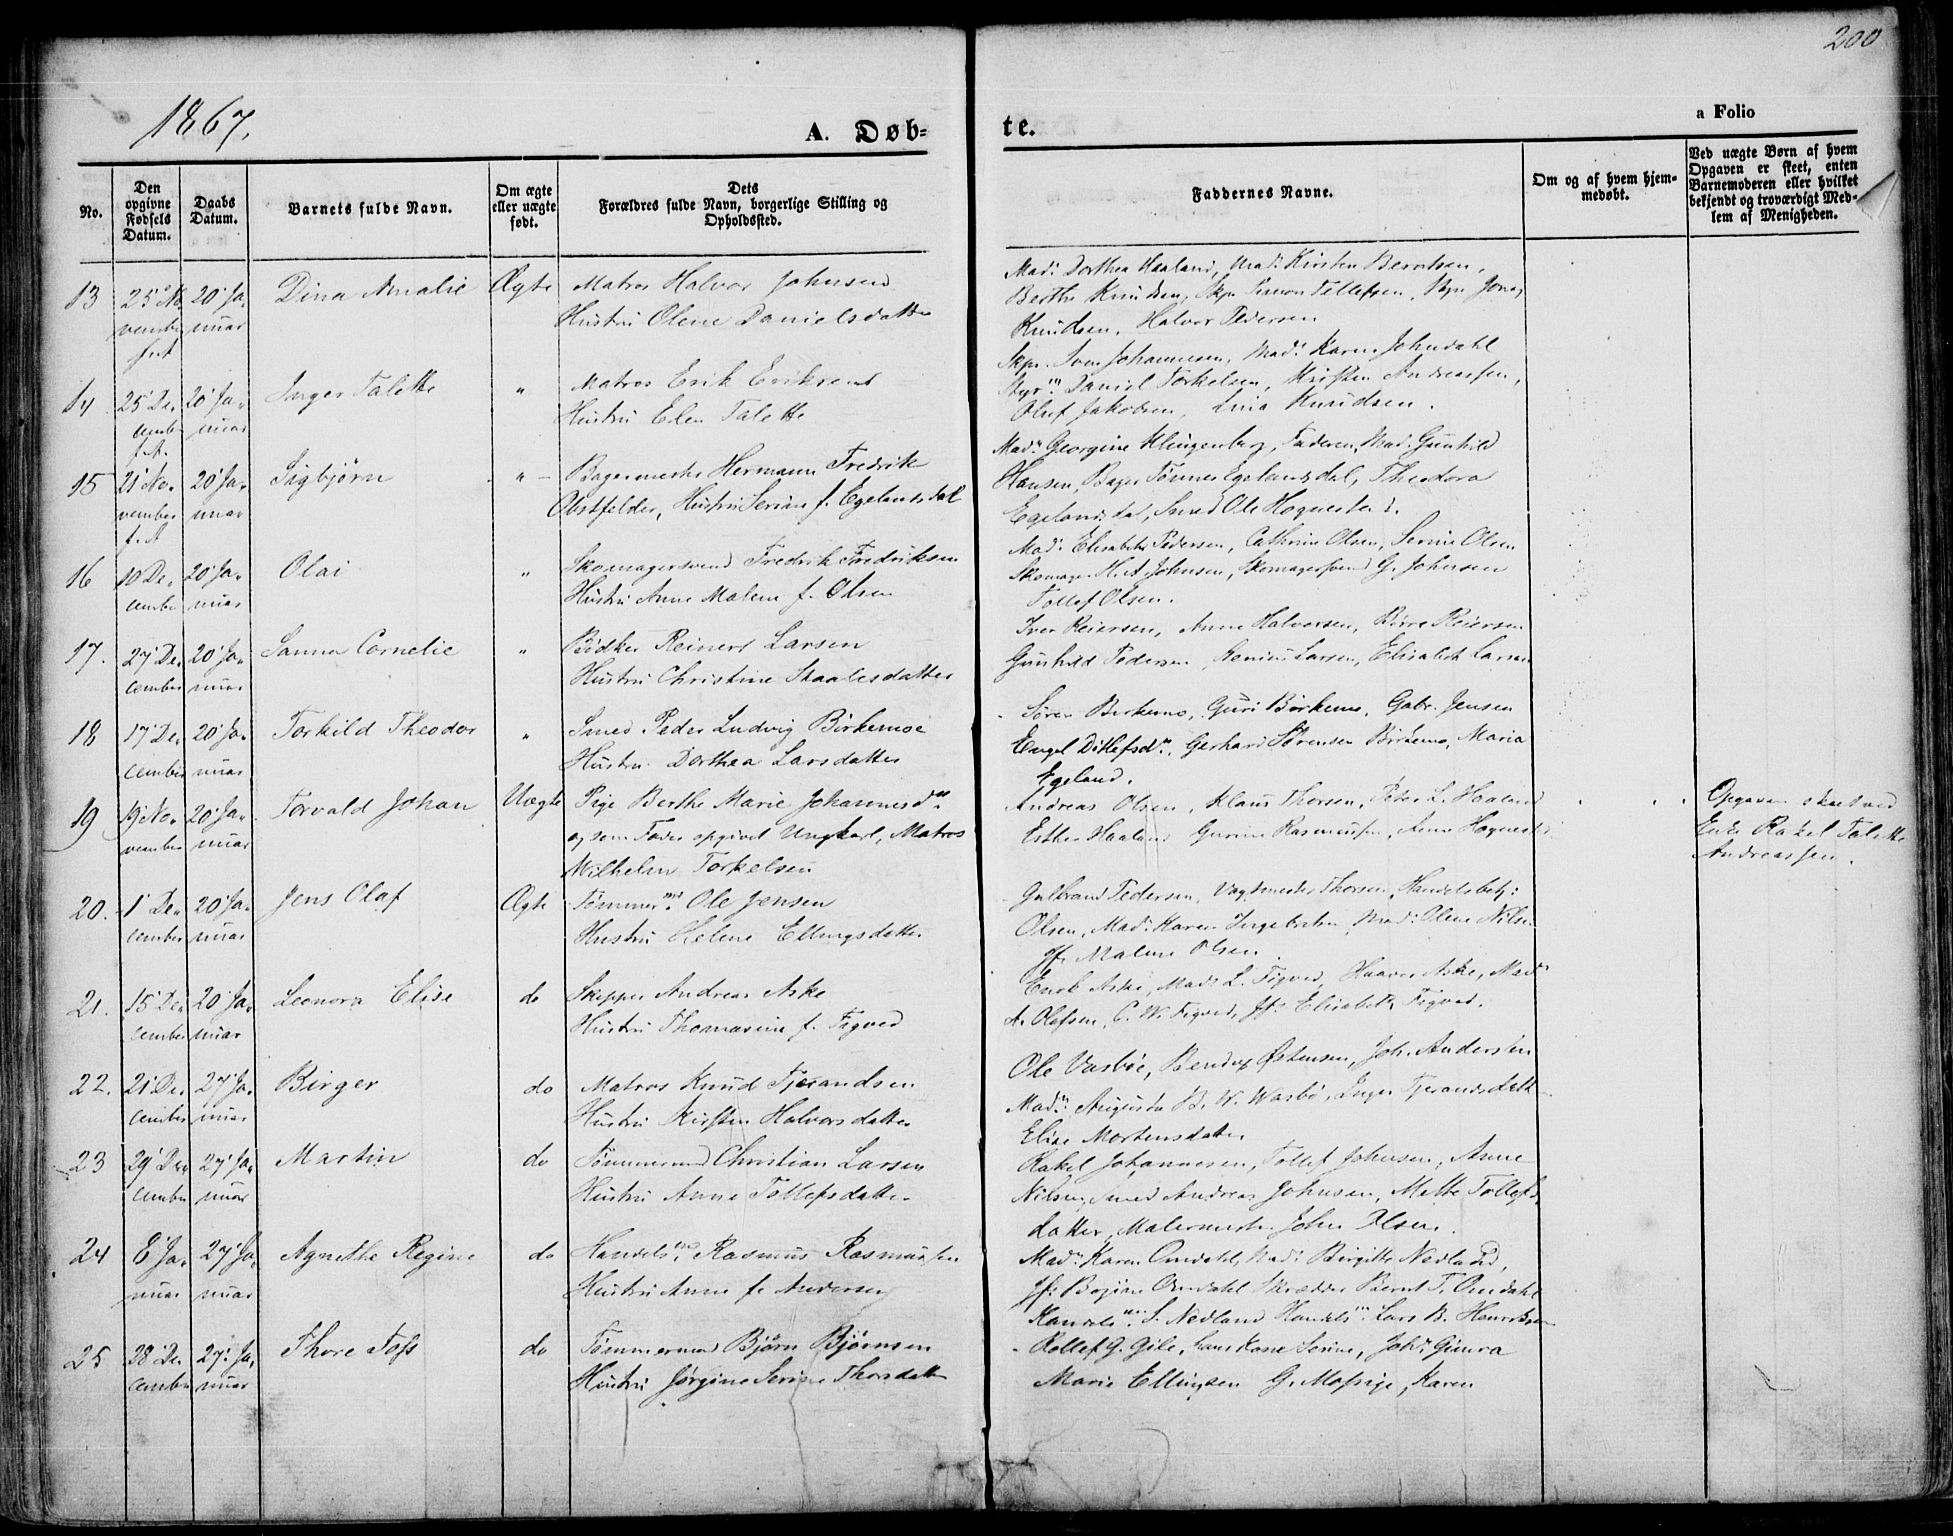 200
1867.
A. Døb-
te.
a Folio
No.
Den opgivne Fødsels Datum.
Daabs Datum.
Barnets fulde Navn.
Om ægte eller uægte født.
Dets Forældres fulde Navn, borgerlige Stilling og Opholdssted.
Faddernes Navne.
Om og af hvem hjemmedøbt.
Ved uægte Børn af hvem Opgaven er skeet, enten Barnemoderen eller hvilket bekjendt og troværdigt Medlem af Menigheden.
13 25' No- 20' Ja- Dina Amalie Ægte Matros Halvor Johnsen
vember nuar Hustru Olene Danielsdatter
f. A
Mad: Dorthea Haaland, Mad: Kirsten Berntsen,
Berthe Knudsen, Skpr Simon Tellefsen, Jonas
Knudsen, Halvor Pedersen
14 25' De- 20' Ja- Inger Talette " Matros Erik Eriksen
cember nuar Hustru Elen Talette
f. A.
Skpr. Sven Johannesen, Mad: Karen Johndahl
Daniel Torkelsen, Kirsten Andreassen,
Oluf Jakobsen, Lina Knudsen.
15 21' No- 20' Ja- Sigbjørn " Bagermester Hermann Fredrik
vember nuar Obstfelder, Hustru Serine f. Egelandsdal
f. A
Mad: Georgine Klingenberg, Faderen, Mad: Gunhild
Hansen, Bager Tønnes Egelandsdal, Theodora
Egelandsdal, Smed Ole Hognestad.
16 10 De- 20' Ja- Olai " Skomagersvend Fredrik Fredriksen
cember nuar Hustru Anne Malene f. Olsen
Mad: Elisabeth Pedersen, Cathrine Olsen, Serine Olsen
Skomager H. A. Johnsen, Skomagersvend G. Johnsen
Tollef Olsen.
17. 27' De- 20' Ja- Sanna Cornelie " Bødker Reinert Larsen
cember nuar Hustru Christine Staalesdatter
Iver Reiersen, Anne Halvorsen, Børre Reiersen
Gunhild Pedersen, Larsen, Elisabeth Larsen
18 17' De- 20' Ja- Torkild Theodor " Smed Peder Ludvig Birkemoe
cember nuar Hustru Dorthea Larsdatter
Søren Birkemo, Guri Birkemo, Gabr. Jensen
Engel Ditlefsd., Gerhard Sørensen Birkemo, Maria
Egeland.
19 19' No- 20' Ja- Torvald Johan Uægte Pige Berthe Marie Johannesd.
vember nuar og som Fader opgivet Ungkarl, Matros
Wilhelm Torkelsen
Andreas Olsen, Klaus Thorsen, Peter L. Haaland
Esther Haaland, Gurine Rasmussen, Anne Hognestad
Opgaven skeet ved
Enke Rakel Talette
Andreassen.
20. 1' De- 20' Ja- Jens Olaf Ægte Tømmerm. Ole Jensen
cember nuar Hustru Helene Ellingsdatter
Gulbrand Pedersen, Vagtmester Thorsen, Handelsbetj:
Olsen, Mad: Karen Ingebretsen, Mad: Olene Nilsen
Jfr Malene Olsen.
21. 15' De- 20' Ja- Leonora Elise do Skipper Andreas Aske
cember nuar Hustru Thomasine f. Tigved
Enok Aske, Mads L. Tigved, Haaver Aske, Mad:
A. Olefsen, C. W. Tigved, Jfr Elisabeth Tigved.
22. 21' De- 27' Ja- Birger do Matros Knud Tjerandsen
cember nuar Hustru Kirsten Halvorsdatter
Ole Vasbøe, Østensen, Joh. Andersen
Mad: Augusta B. W. Wasbø, Inger Tjerandsdatter
Elise Mortensdatter
23 29' De- 27' Ja- Martin do Tømmermand Christian Larsen
cember nuar Hustru Anne Tollefsdatter
Rakel Johannesen, Tollef Johnsen, Anne
Nilsen, Smed Andreas Johnsen, Mette Tollefs
datter, Malermester John Olsen.
24 6' Ja- 27' Ja- Agnethe Regine do Handelsm. Rasmus Rasmussen
nuar nuar Hustru Anne f. Andersen
Mad: Karen Omdahl, Mad: Birgitte Nedland,
Jfr Omdahl, Skrædder Bernt T. Omdahl
Handelsm. S. Nedland, Handelsm. Lars B. Henriksen
25 28' De- 27' Ja- Thore Foss do Tømmermand Bjørn Bjørnsen
cember nuar Hustru Jørgine Serine Thorsdatter
Rollef G. Gile, Serine, Joh. Gimra
Marie Ellingsen, G. Mossige, Karen